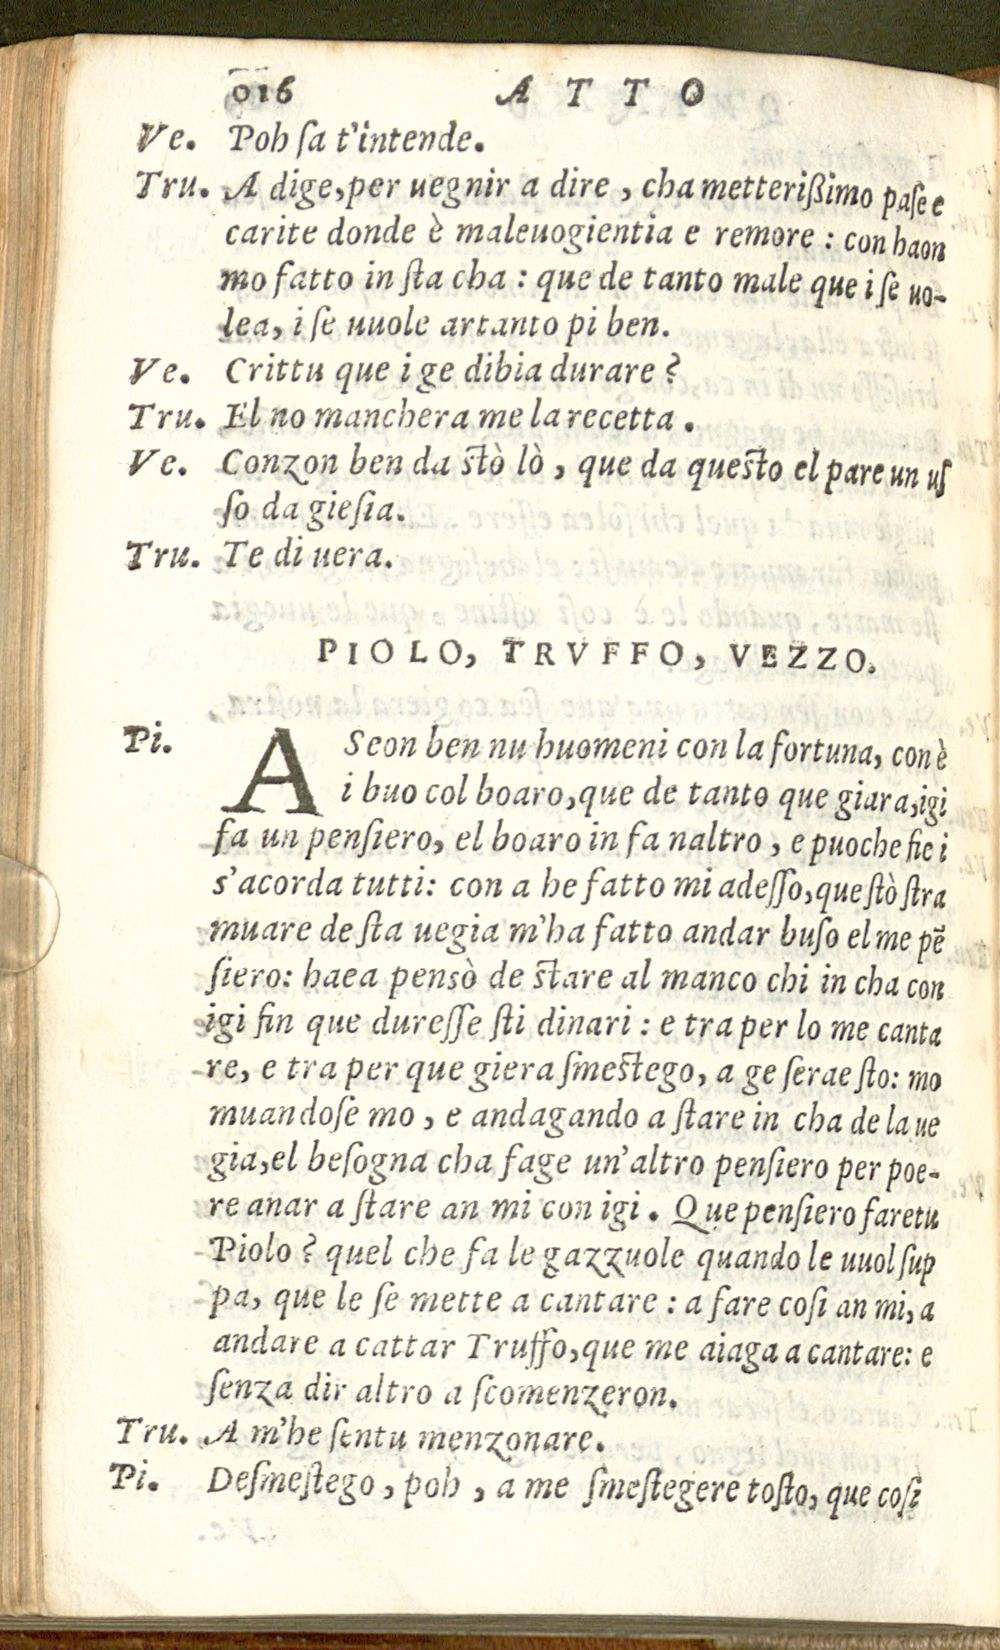 016 ATTO
Ve. Poh ſa t'intende.
Tru. A dige, per uegnir a dire, cha metterißimo paſe e
carite donde è maleuogientia e remore: con haon
mo fatto in ſta cha: que de tanto male que i ſe uo-
lea, i ſe uuole artanto pi ben.
Ve. Crittu que i ge dibia durare?
Tru. El no manchera me la recetta.
Ve. Conzon ben da ſtò lò, que da queſto el pare un uſ
ſo da gieſia.
Tru. Te di uera.
PIOLO, TRVFFO, VEZZO.
Pi. A Seon ben nu huomeni con la fortuna, con è
i buo col boaro, que de tanto que giara, igi
fa un penſiero, el boaro in fa naltro, e puoche fie i
s'acorda tutti: con a he fatto mi adeſſo, que ſtò ſtra
muare de ſta uegia m'ha fatto andar buſo el me pē
ſiero: haea pensò de ſtare al manco chi in cha con
igi fin que dureſſe ſti dinari: e tra per lo me canta
re, e tra per que giera ſmeſtego, a ge ſerae ſto: mo
muandoſe mo, e andagando a ſtare in cha de la ue
gia, el beſogna cha fage un'altro penſiero per poe-
re anar a ſtare an mi con igi. Que penſiero faretu
Piolo? quel che fa le gazzuole quando le uuol ſup
pa, que le ſe mette a cantare: a fare coſi an mi, a
andare a cattar Truffo, que me aiaga a cantare: e
ſenza dir altro a ſcomenzeron.
Tru. A m'he ſentu menzonare.
Pi. Deſmeſtego, poh, a me ſmeſtegere toſto, que coſi